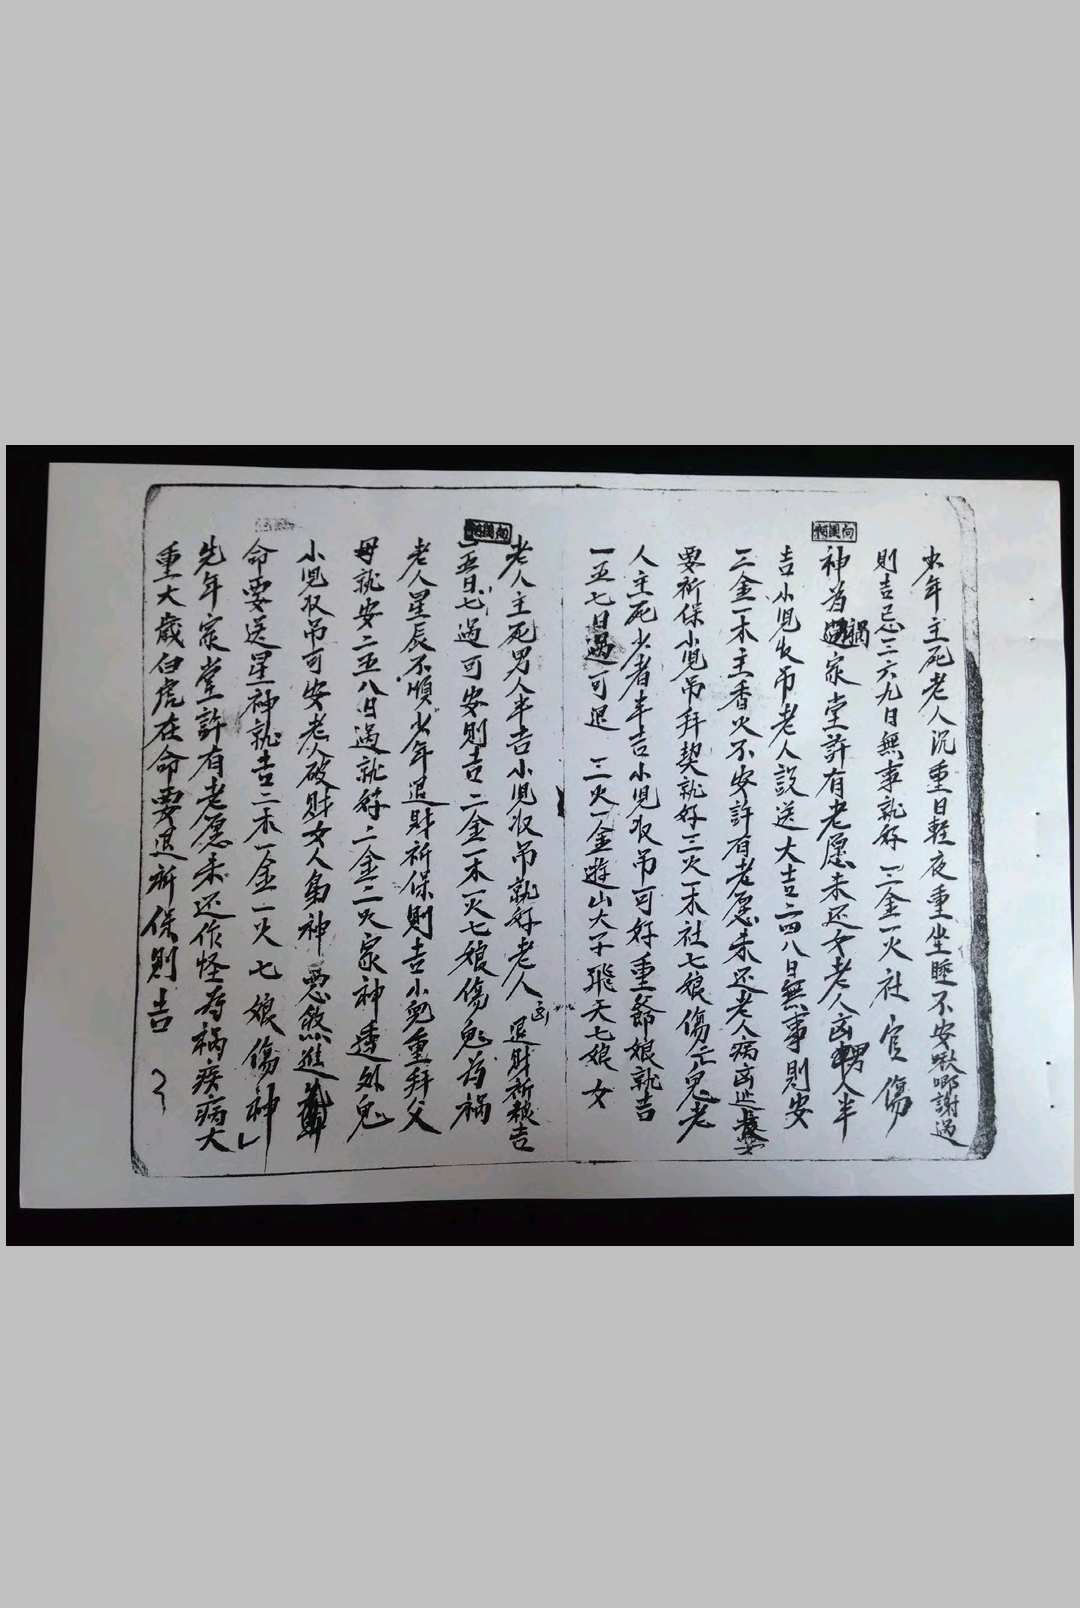 少年主死老人沉重日輕夜重坐睡不安啾唧謝過
則吉忌三六九日無事就好 三金一火社官傷
神為禍家堂許有老愿未还女老人凶男人半
吉小児收吊老人設送大吉二四八日無事則安
三金一木主香火不安許有老愿未还老人病凶
要祈保小児吊拜契就好三火一木社七娘傷亡鬼老
人主死少者半吉小児收吊可好重爺娘就吉
一五七日過可退 三火一金遊山大王飛天七娘女
老人主死男人半吉小児收吊就好老人凶退財祈穰吉
五日七過可安則吉二金一木一火七娘傷鬼為禍
老人星辰不順少年退財祈保則吉小児重拜父
母就安二五八日過就好二金二火家神透外鬼
小児收吊可安老人破財女人身神惡煞進
命要送星神就吉二木一金一火七娘傷神
先年家堂許有老愿未还作怪為禍疾病大
重大歲白虎在命要退祈保則吉